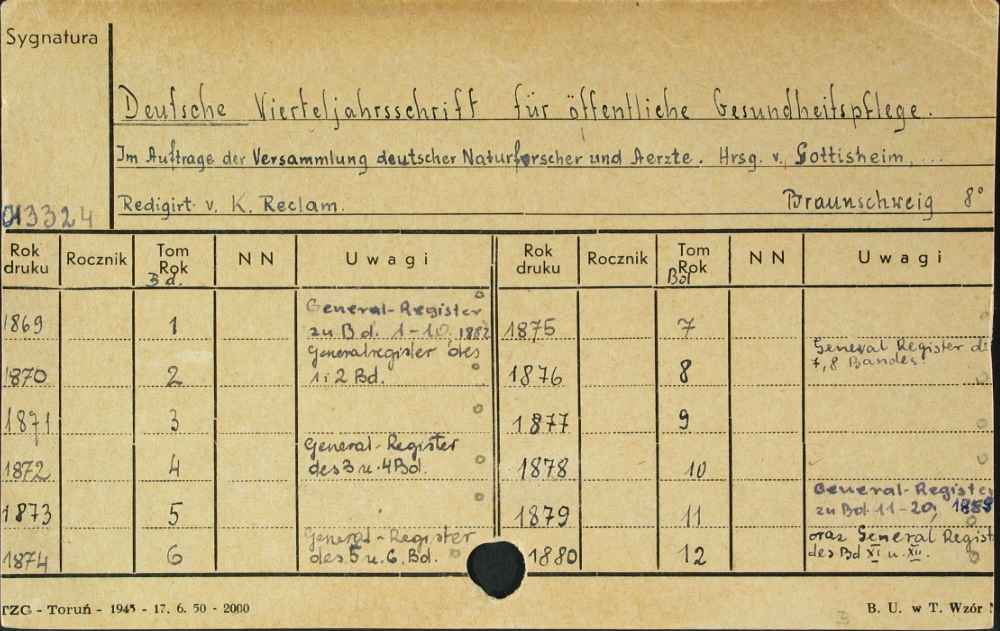 Sygnatura
Deutsche Vierteljahrsschrift für öffentliche Gesundheitspflege.
Im Auftrage der Versammlung deutscher Naturforscher und Aerzte. Hrsg. v. Gottisheim, ...
Redigirt v. K. Reclam. Braunschweig 8°
013324
Rok druku Rocznik Tom Rok Bd. NN Uwagi Rok druku Rocznik Tom Rok Bd NN Uwagi
General-Register
1869 1 zu Bd. 1-10, 1882 1875 7
Generalregister des General Register d
1870 2 1 i 2 Bd. 1876 8 7, 8 Bandes.
1871 3 1877 9
General-Register
1872 4 des 3 u. 4 Bd. 1878 10
General-Registe
1873 5 1879 11 zu Bd. 11-20,
General-Register oraz General Regist
1874 6 des 5 u. 6. Bd. 1880 12 des Bd XI u. XII.
TZG - Toruń - 1945 - 17. 6. 50 - 2000 B. U. w T. Wzór